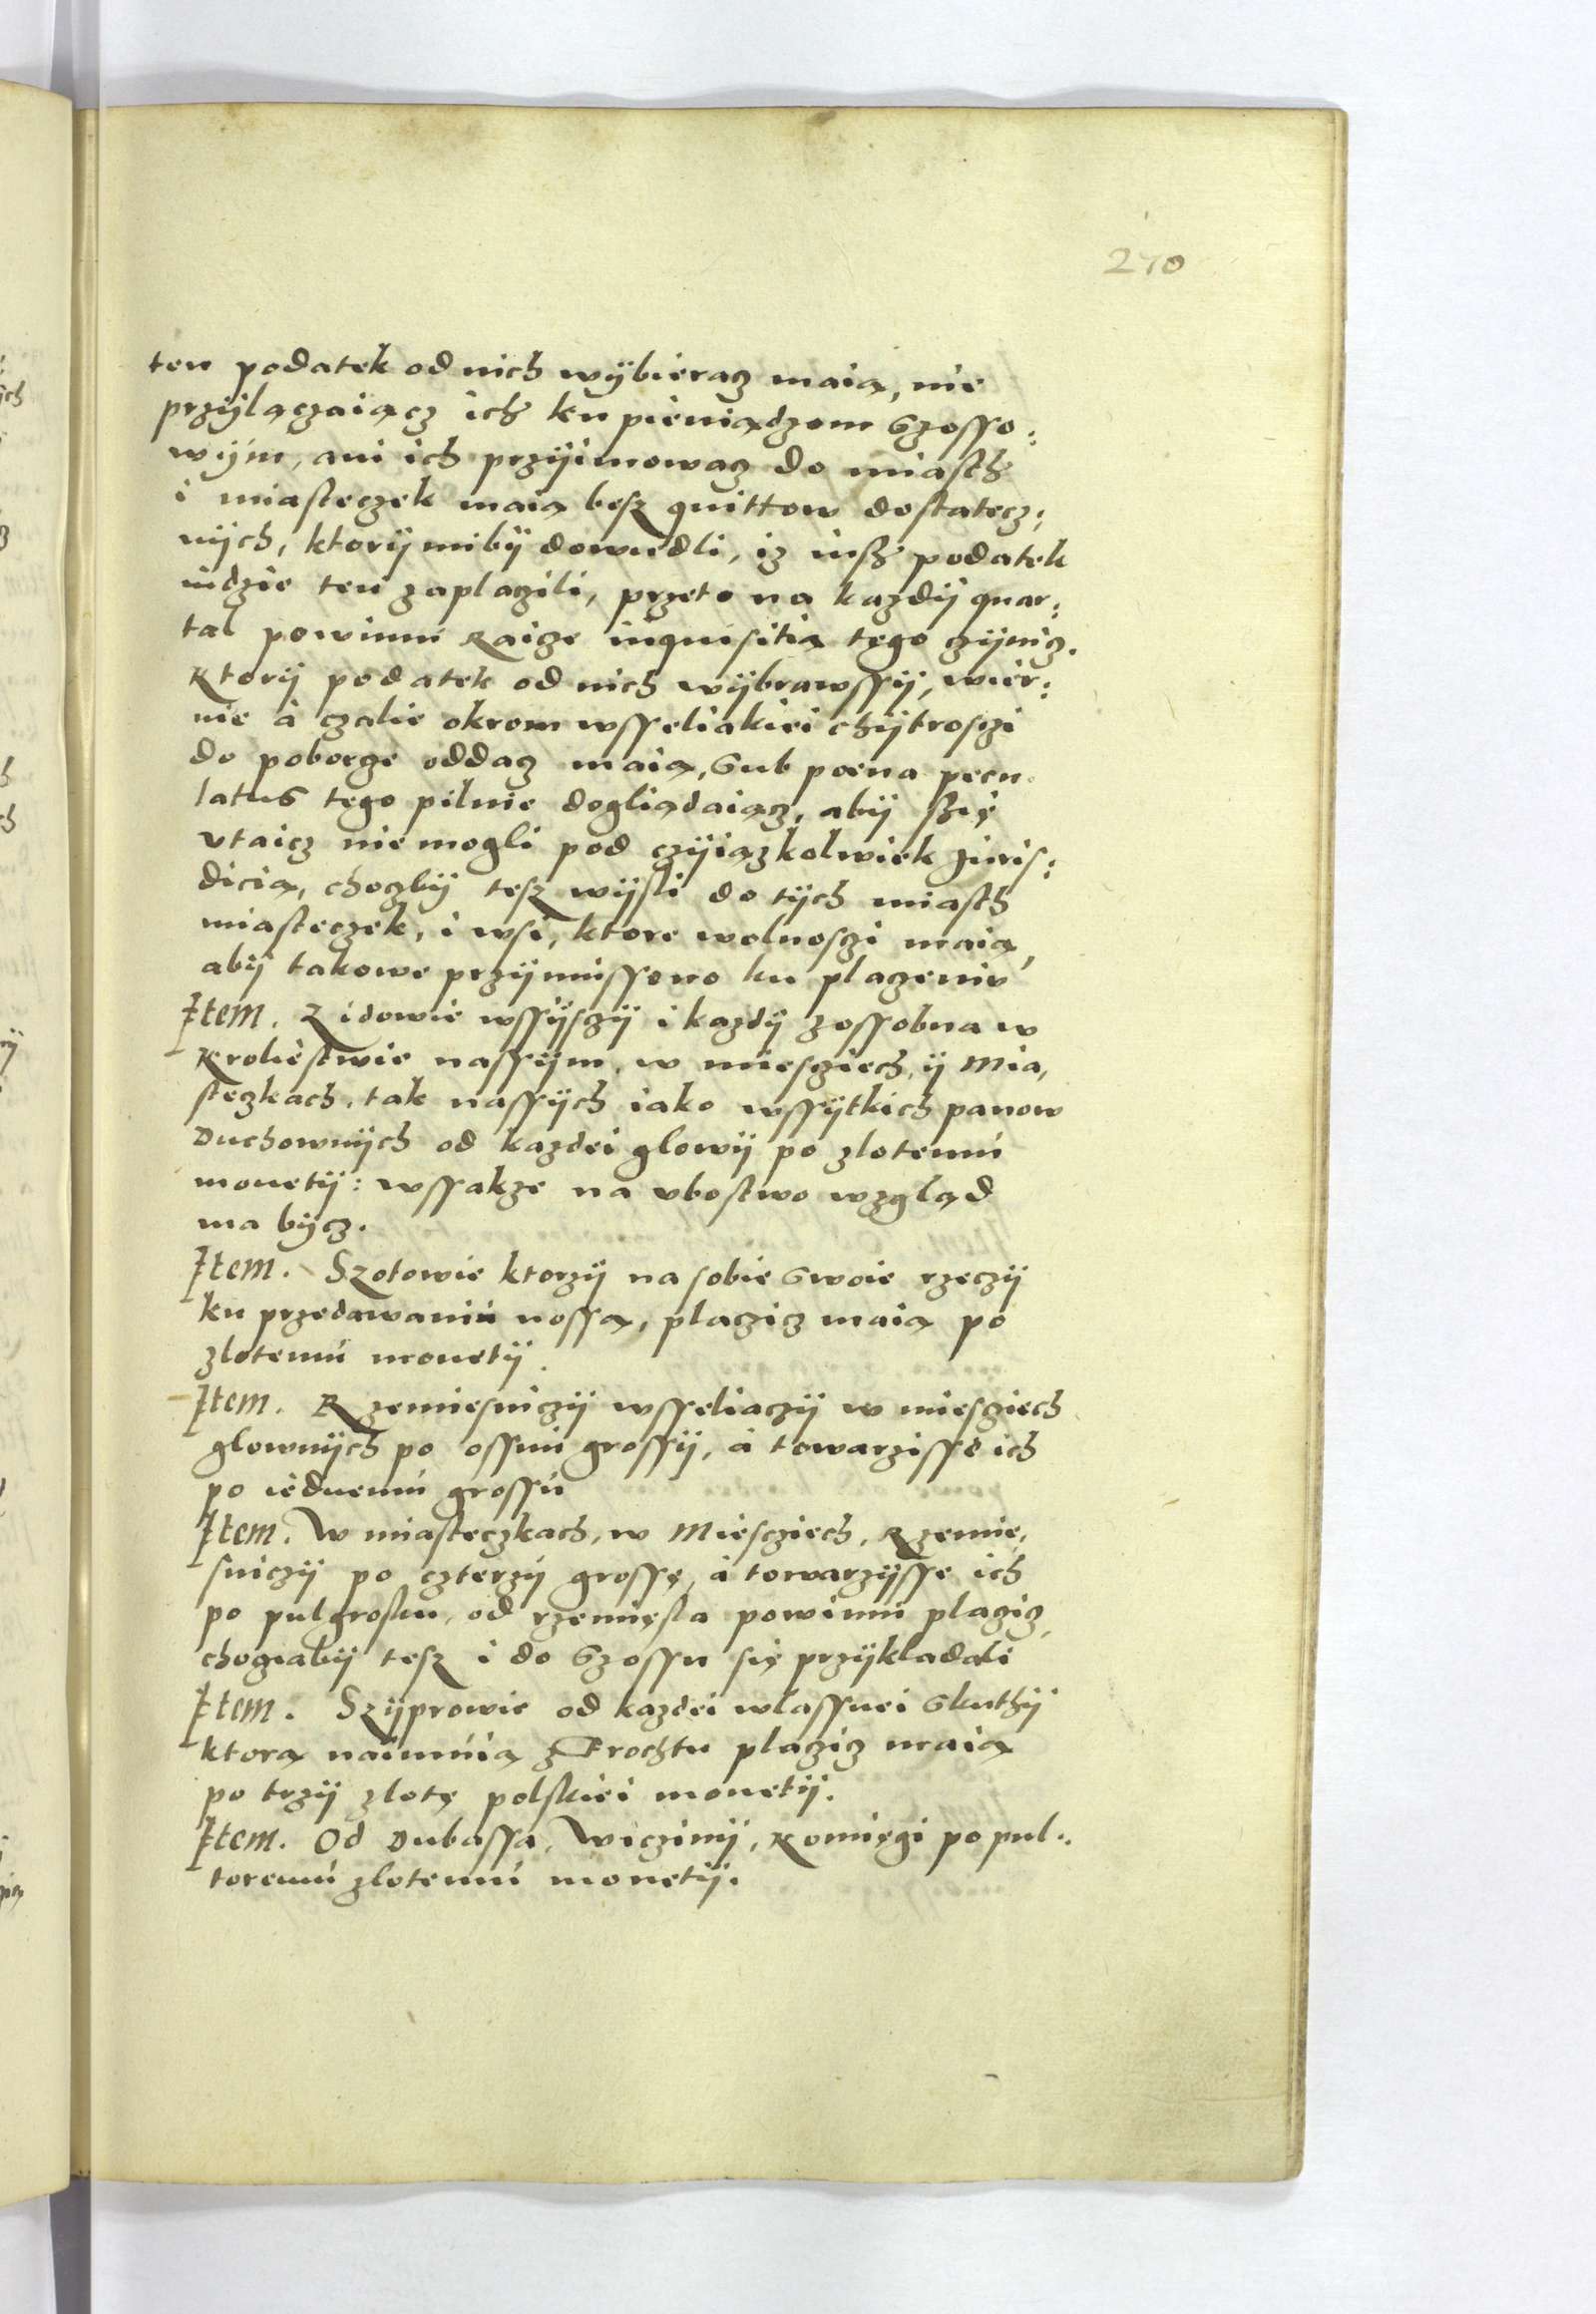 270
ten podatek od nich wÿbieracz maią, nie
przÿłączaiącz ich ku pieniądzom Szosso:
wÿm, ani ich przÿimowacz do miasth
i miasteczek maią besz quittow dostatecz:
nÿch, ktorÿmibÿ dowiedli, iz insz podatek
indzie ten zaplaczili, przeto na kazdÿ quar:
tal powinni Raicze inquisitią tego czÿnicz.
Ktorÿ podatek od nich wÿbrawssÿ, wier:
nie á czalie okrom wsseliakiei chÿtrosczi
do poborcze oddacz maią, sub poena pecu
latus tego pilnie dogliądaiącz, abÿ szię
vtaicz nie mogli pod czÿiązkolwiek Juris:
dicią, choczbÿ tesz wÿsli do tÿch miasth
miasteczek, i wsi, ktore wolnosczi maią,
abÿ takowe przÿmussono ku placzeniu
Item. Zidowie wssÿsczÿ i kazdÿ zossobna w
Kroliestwie nassÿm, w miesciech, ÿ Mia,
steczkach, tak nassÿch iako wssÿtkich panow
Duchownÿch od kazdei glowÿ po zlotemu
monetÿ: wssakze na vbostwo wzgląd
ma bÿcz.
Item. Szotowie ktorzÿ na sobie swoie rzeczÿ
ku przedawaniu nossą, placzicz maią po
zlotemu monetÿ.
Item. Rzemiesniczÿ wsseliaczÿ w miesciech
glownÿch po ossmi grossÿ, á towarzisse ich
po iednemu grossu
Item. W miasteczkach, w Miesciech, Rzemie,
sniczÿ po czterzÿ grossę, á towarzÿsse ich
po pulgrosku, od rzemięsla powinni placzicz,
chociabÿ tesz i do Szossu się przÿkladali
Item. Szÿprowie od kazdei wlassnei skuthÿ
ktorą naimuią z Frochtu placzicz maią
po trzÿ zlotę polskiei monetÿ.
Item. Od Dubassa, Wiczinÿ, Komięgi po pul:
toremu zlotemu monetÿ.